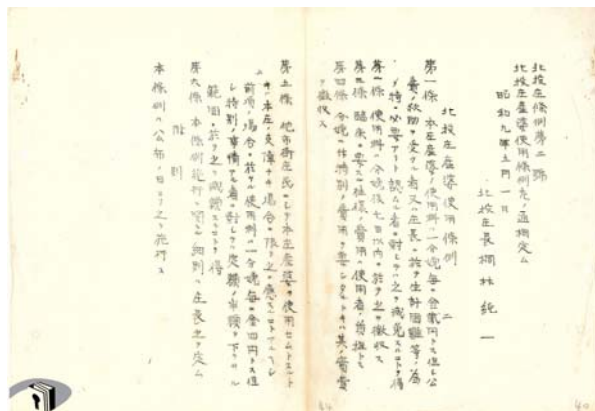 北投庄條例第二號
北投庄產婆使用條例左ノ通相定ム
昭和九年五月一日
北投庄長 桐林純一
北投庄產婆使用條例
第一條 本庄產婆ノ使用料ハ一分娩每ニ金貳円トス但シ公
費ノ救助ヲ受クル者又ハ庄長ニ於テ生計困難等ノ為
メ特ニ必要アリト認ムル者ニ對シテハ之ヲ減免スルコトヲ得
第二條 使用料ハ分娩後七日以內ニ於テ之ヲ徵收ス
第三條 臨床ニ要スル ノ費用ハ使用者ノ負擔トス
第四條 分娩ニ付特別ノ費用ヲ要シタルトキハ其ノ實費
ヲ徵收ス
第五條 他市街庄民ニシテ本庄產婆ヲ使用セムトスルト
キハ本庄ニ支障ナキ場合ニ限リ之ニ應スルコトアルヘシ
前項ノ場合ニ於ケル使用料ハ一分娩每ニ金四円トス但
シ特別ノ事情アル者ニ對シテハ定額ノ半額ヲ下ラサル
範圍ニ於テ之ヲ減額スルコトヲ得
第六條 本條例施行ニ關シ細則ハ庄長之ヲ定ム
附則
本條例ハ公布ノ日ヨリ之ヲ施行ス